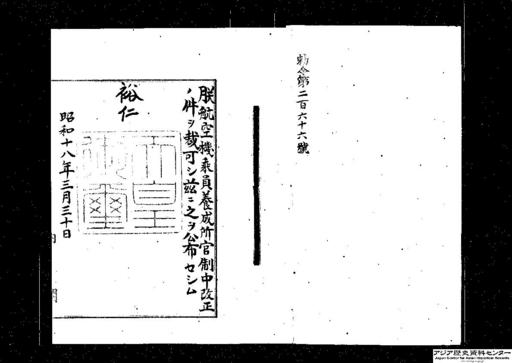 勅令第二百六十六號
朕航空機乘員養成所官制中改正
ノ件ヲ裁可シ茲ニ之ヲ公布セシム
裕仁
天皇
御璽
昭和十八年三月三十日
アジア歴史資料センター
Japan Center for Asian Historical Records